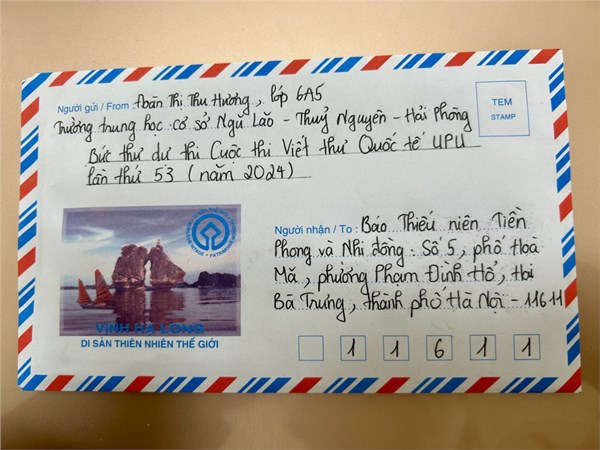 Người gửi / From : Đoàn Thị Thu Hương, lớp 6A5
Trường trung học cơ sở Ngũ Lão - Thuỷ Nguyên - Hải Phòng
Bức thư dự thi Cuộc thi Viết thư Quốc tế UPU
lần thứ 53 (năm 2024)
TEM
STAMP
Người nhận / To : Báo Thiếu niên Tiền
Phong và Nhi đồng. Số 5, phố Hoà
Mã, phường Phạm Đình Hổ, Hai
Bà Trưng, thành phố Hà Nội - 11611
VỊNH HẠ LONG
DI SẢN THIÊN NHIÊN THẾ GIỚI
1 1 6 1 1